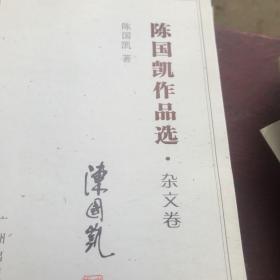 陈国凯作品选·杂文卷
陈国凯 著
陳國凱
广州出